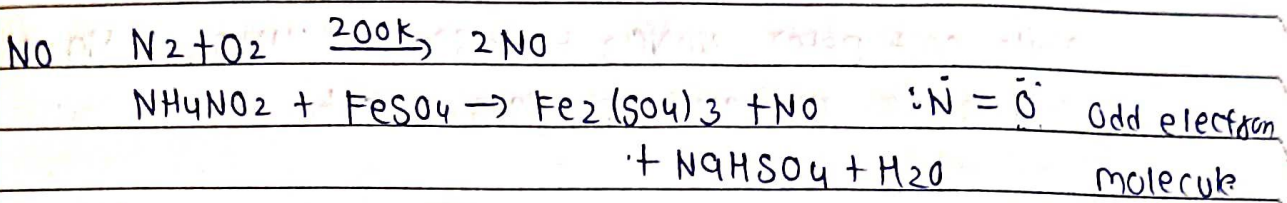 NO N2+O2 200K→ 2NO
NH4NO2 + FeSO4 → Fe2(SO4)3 +NO :N̈ = Ö: Odd electron
+ NaHSO4 + H2O molecule